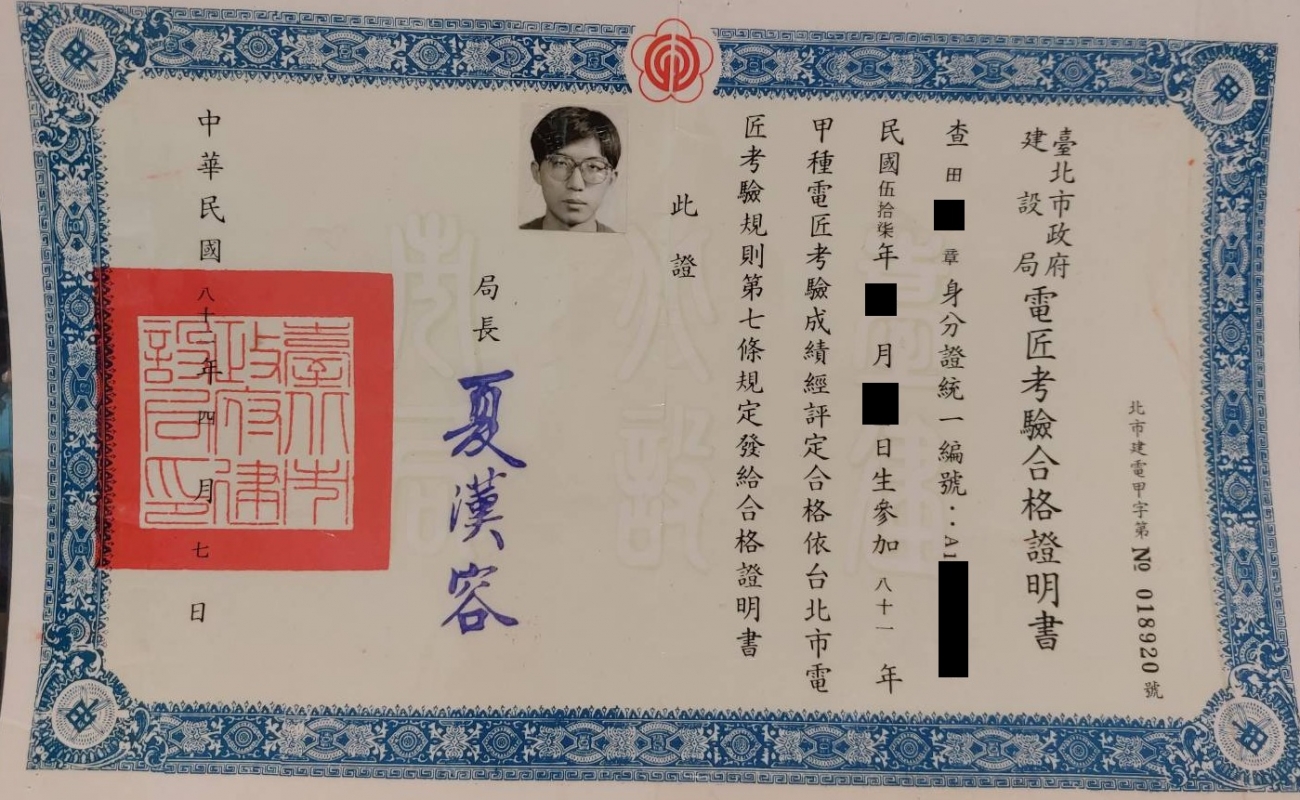 北市建電甲字第 № 018920 號
臺北市政府建設局電匠考驗合格證明書
查田 章身分證統一編號：A1
民國伍拾柒年 月 日生參加八十一年
甲種電匠考驗成績經評定合格依台北市電
匠考驗規則第七條規定發給合格證明書
此證
局長 夏漢容
中華民國八十一年四月七日
臺北市
政府建
設局印